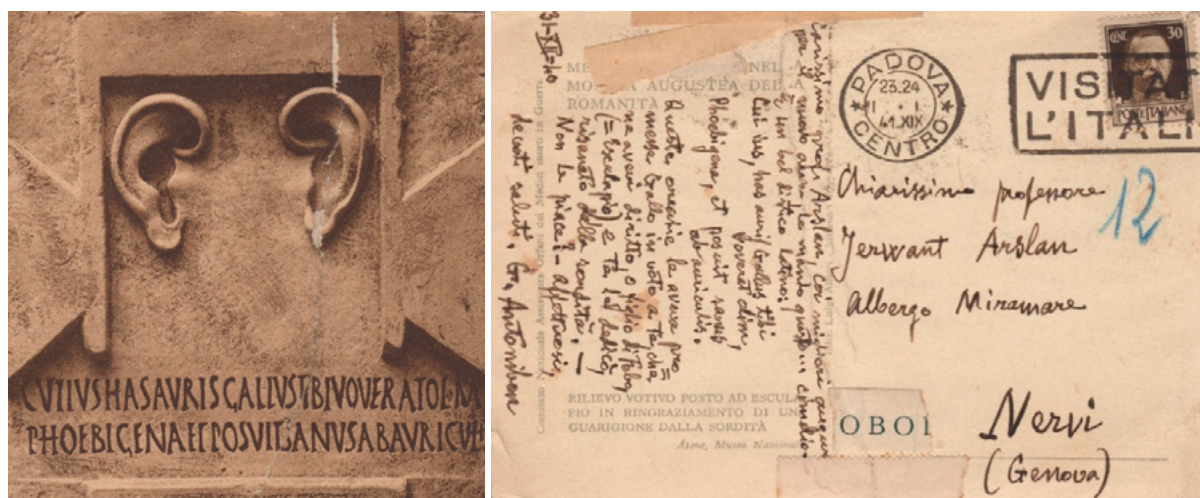 CVTIVSHASAVRISGALIVSTIBIVOVERATOLIM
PHOEBIGENAETPOSVITSANVSABAVRICVLI
31-XII-40
Carissimo prof. Arslan, coi migliori auguri
per il nuovo anno, le mando questo...
È un bel distico latino:
has auris Gallus tibi
voverat olim,
Phoebigena, et posuit sanus
ab auriculis.
Queste orecchie le aveva pro=
messe Gallo in voto a te, che
ne avevi diritto, o figlio di Febo
(= Esculapio) e te le dedicò,
risanato dalla sordità. —
Non le piace? — Affettuosi,
devoti saluti. G. Antonibon
MOSTRA AUGUSTEA DELLA
ROMANITÀ
Nazionale Orfani dei Medici morti in Guerra
RILIEVO VOTIVO POSTO AD ESCULA
PIO IN RINGRAZIAMENTO DI UN
GUARIGIONE DALLA SORDITÀ
Museo Nazional
PADOVA
23.24
1 · 1
41.XIX
CENTRO
VISITAT
L'ITALI
CENT. 30
POSTE ITALIANE
12
Chiarissimo professore
Jerwant Arslan
Albergo Miramare
OBOI
Nervi
(Genova)